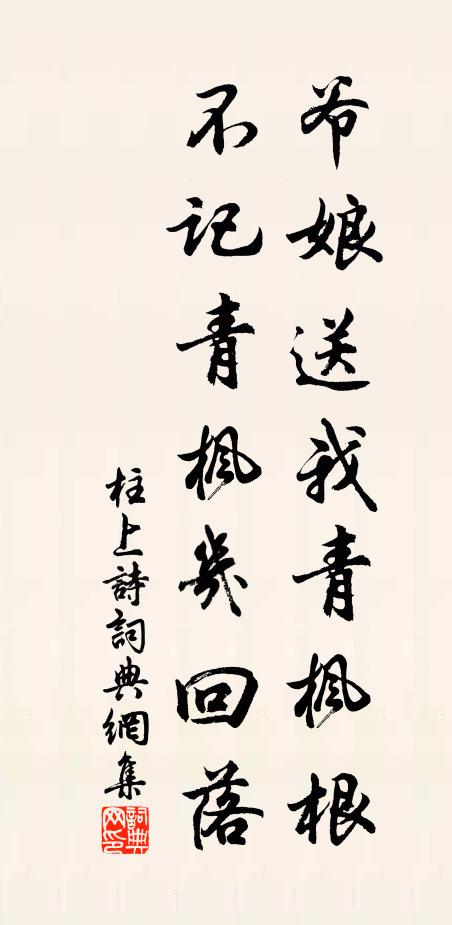 爷娘送我青枫根
不记青枫幾回落
柱上詩詞典網集
詞典网印